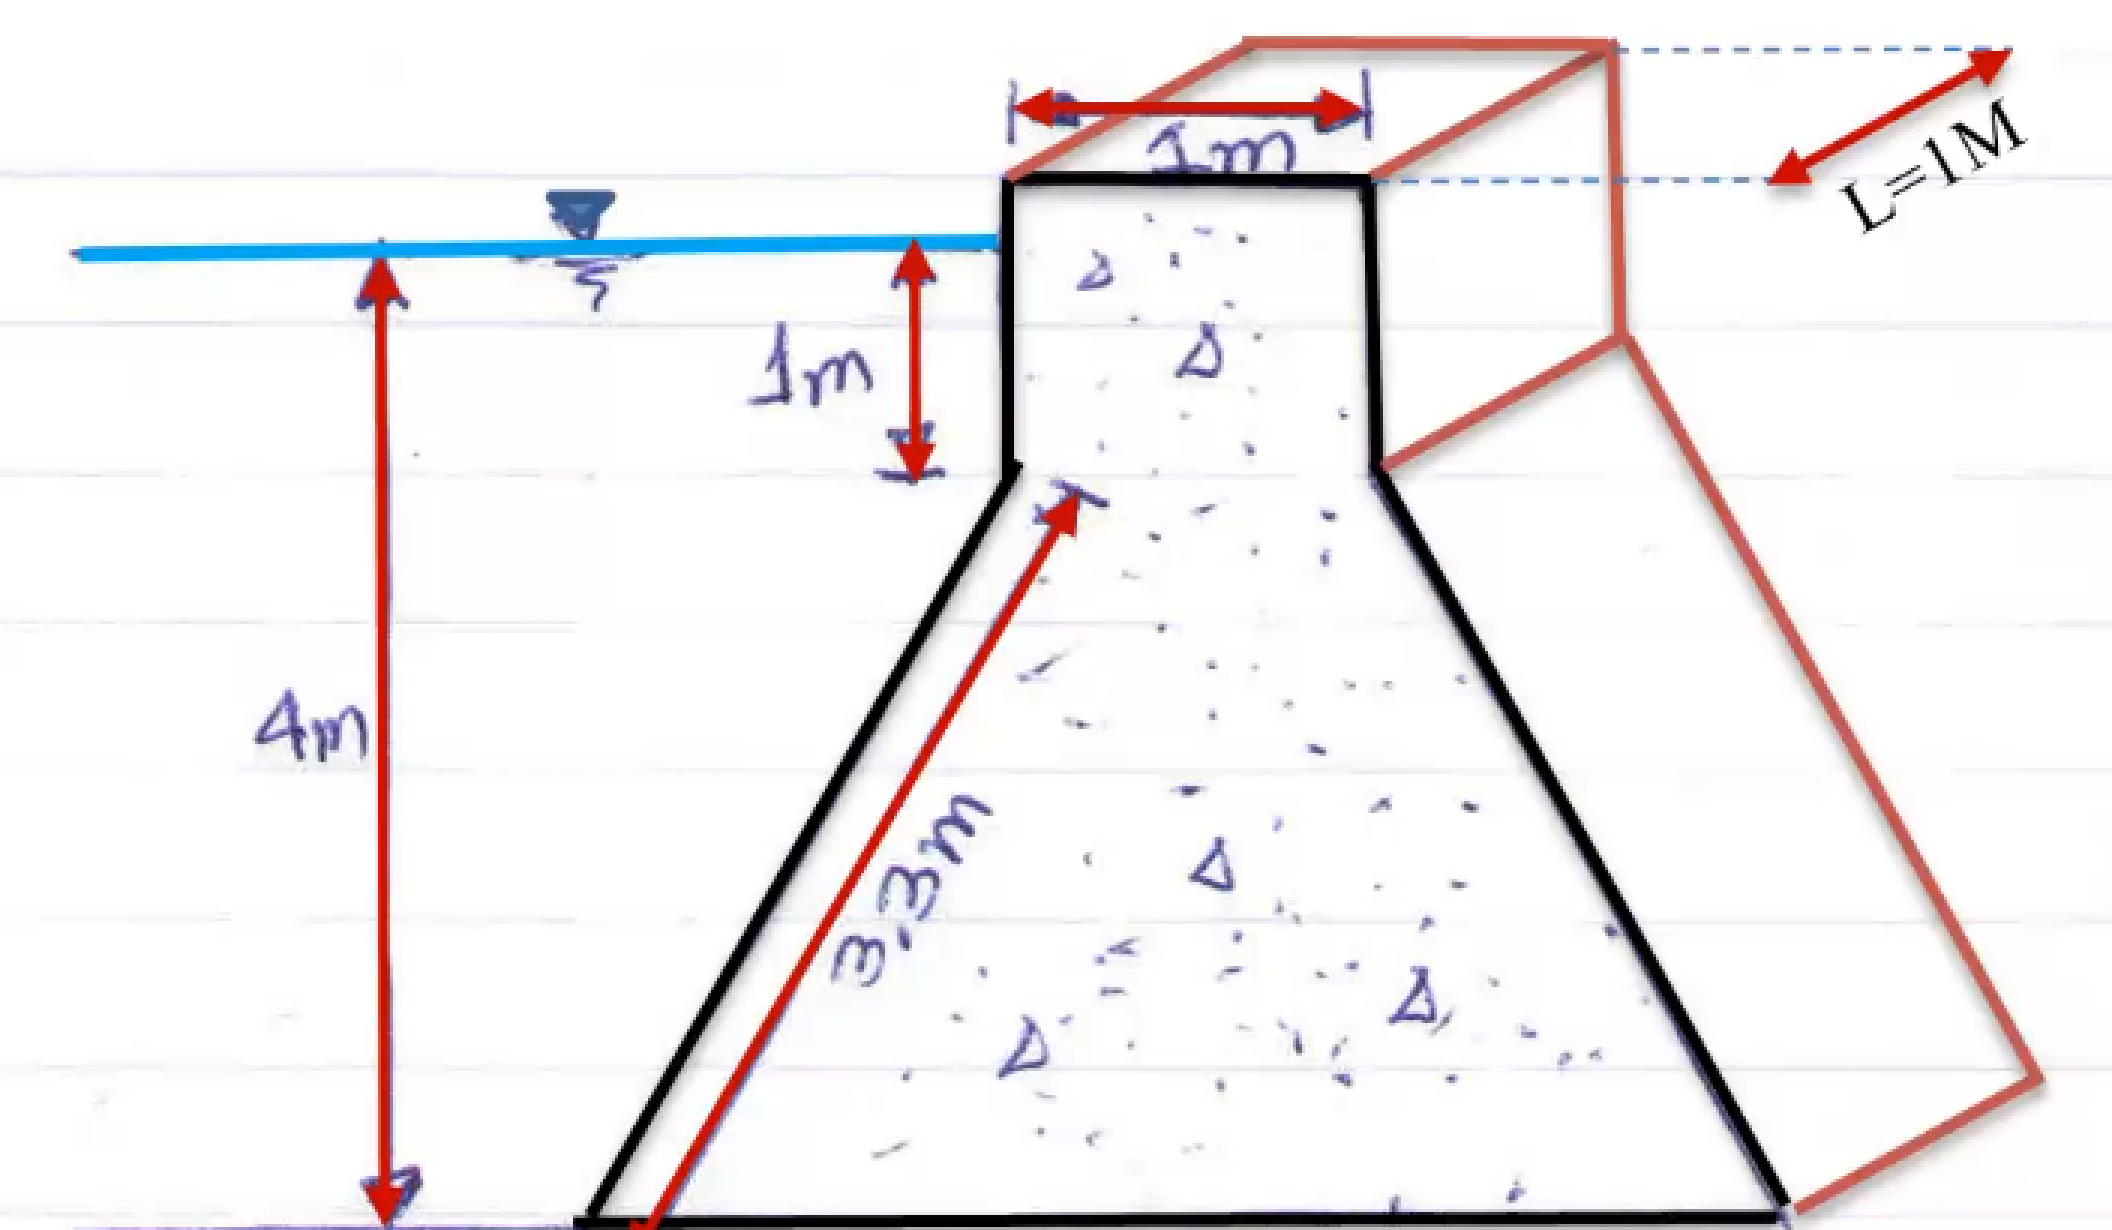 1m
L=1M
1m
4m
3,3m